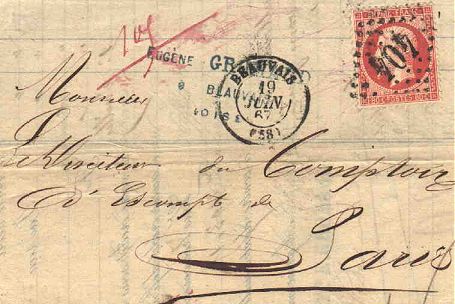 EUGÈNE GR
à BEAUV
(OISE)
BEAUVAIS
19
JUIN
67
(58)
EMPIRE FRANC
404
80 C POSTES 80 C
Monsieur
Le Directeur du Comptoir
d'Escompte de
Paris